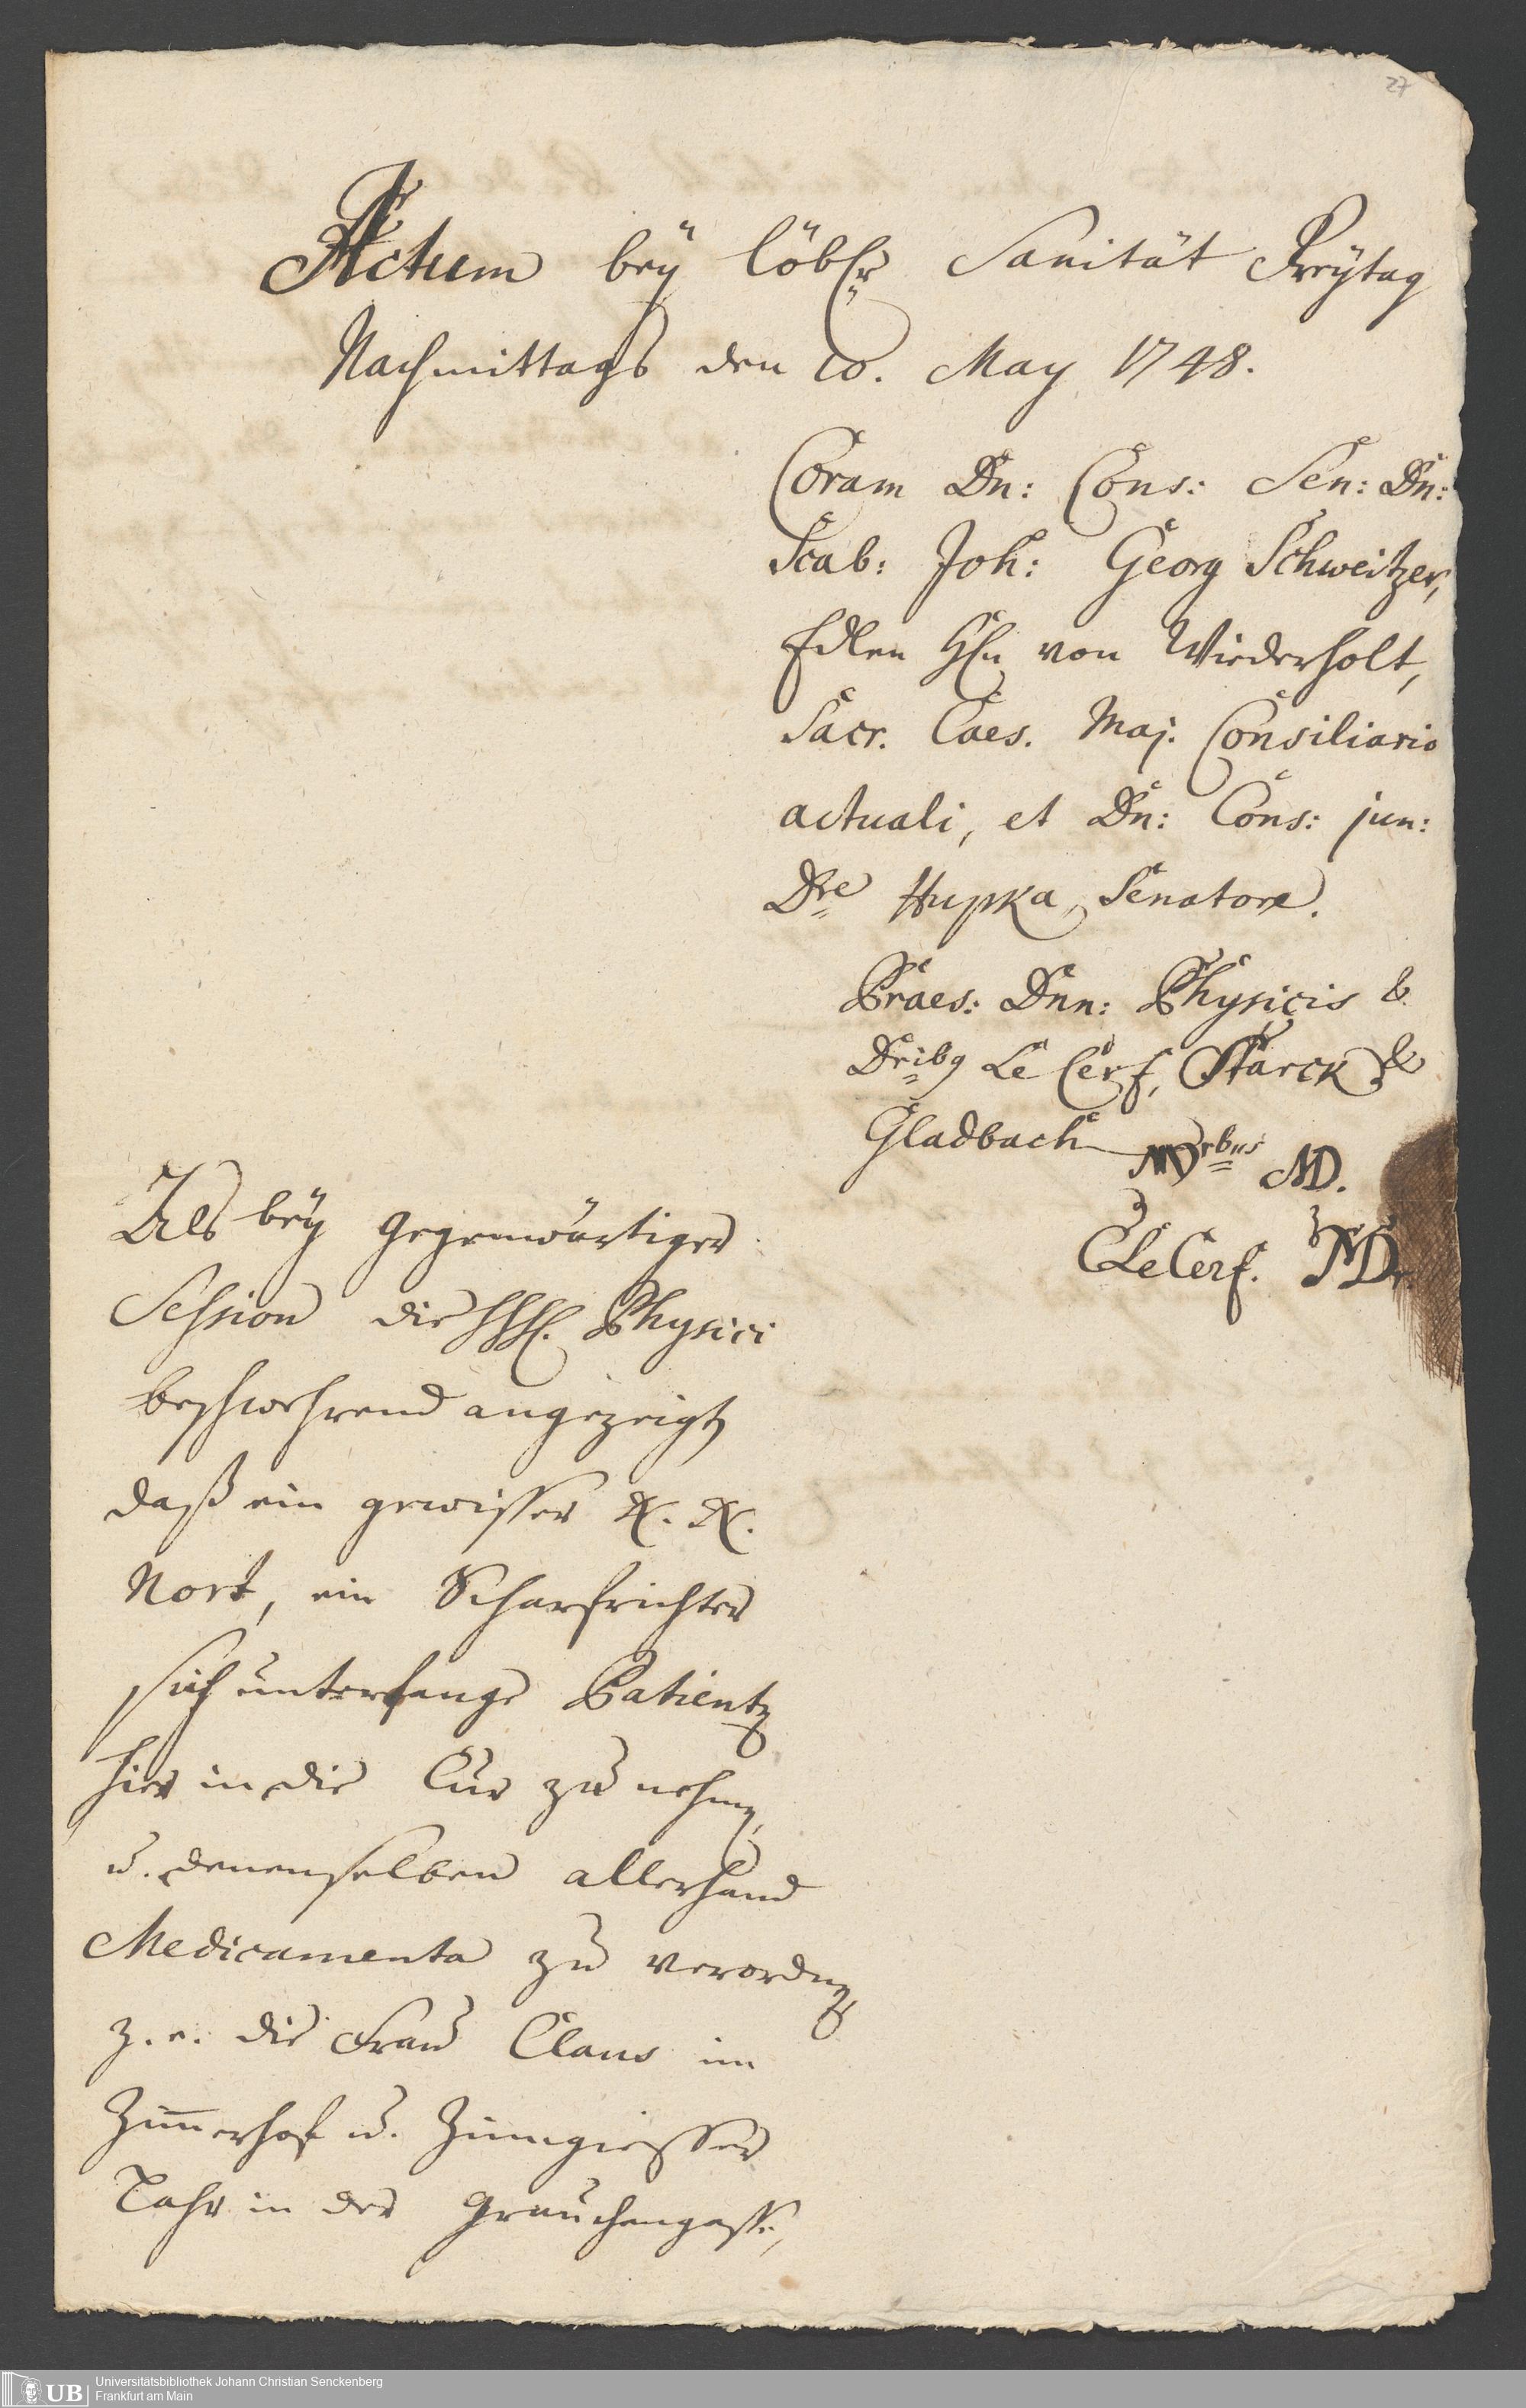 27
Actum bey löbl. Sanität Freytag
Nachmittags den 10. May 1748.
Coram Dn: Cons: Sen: Dn:
Scab: Joh: Georg Schweitzer,
Edlen Hn von Wiederholt,
Sacr. Caes. Maj. Consiliario
actuali, et Dn: Cons: jun:
Dre Hupka, Senatore.
Praes: Dnn: Physicis &
Dribq Le Cerf, Starck &
Gladbach MDrbus MD.
CLeCerf. MDr.
Als bey gegenwärtiger
Session die HHH. Physici
beschwehrend angezeigt,
daß ein gewisser N. N.
Nort, ein Scharfrichter
sich unterfange Patienten
hier in die Cur zu nehmen,
u. denenselben allerhand
Medicamenta zu verordnen,
z. e. die Frau Claus im
Zim̅erhof u. Zinngiesser
Lahr in der Graubengasse,
Universitätsbibliothek Johann Christian Senckenberg
UB Frankfurt am Main